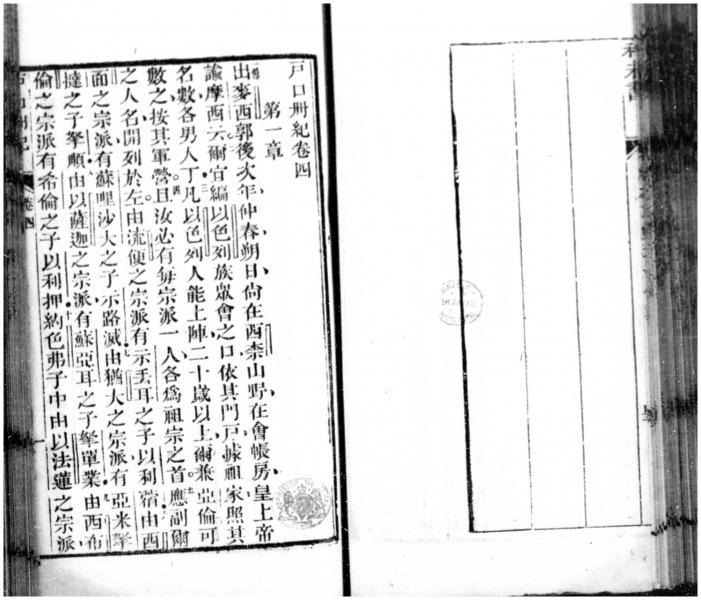 戶口冊紀卷四
第一章
出麥西郭後次年仲春朔日尙在西柰山野在會帳房皇上帝
諭摩西云爾宜編以色列族眾會之口依其門戶據祖家照其
名數各男人丁凡以色列人能上陣二十歲以上爾兼亞倫可
數之按其軍營且汝必有每宗派一人各爲祖宗之首應副爾
之人名開列於左由流便之宗派有示丢耳之子以利𥩠由西
面之宗派有蘇哩沙大之子示路滅由猶大之宗派有亞米拏
撻之子拏順由以薩迦之宗派有蘇亞耳之子拏單業由西布
倫之宗派有希倫之子以利押約色弗子中由以法蓮之宗派
戶口冊紀
卷四